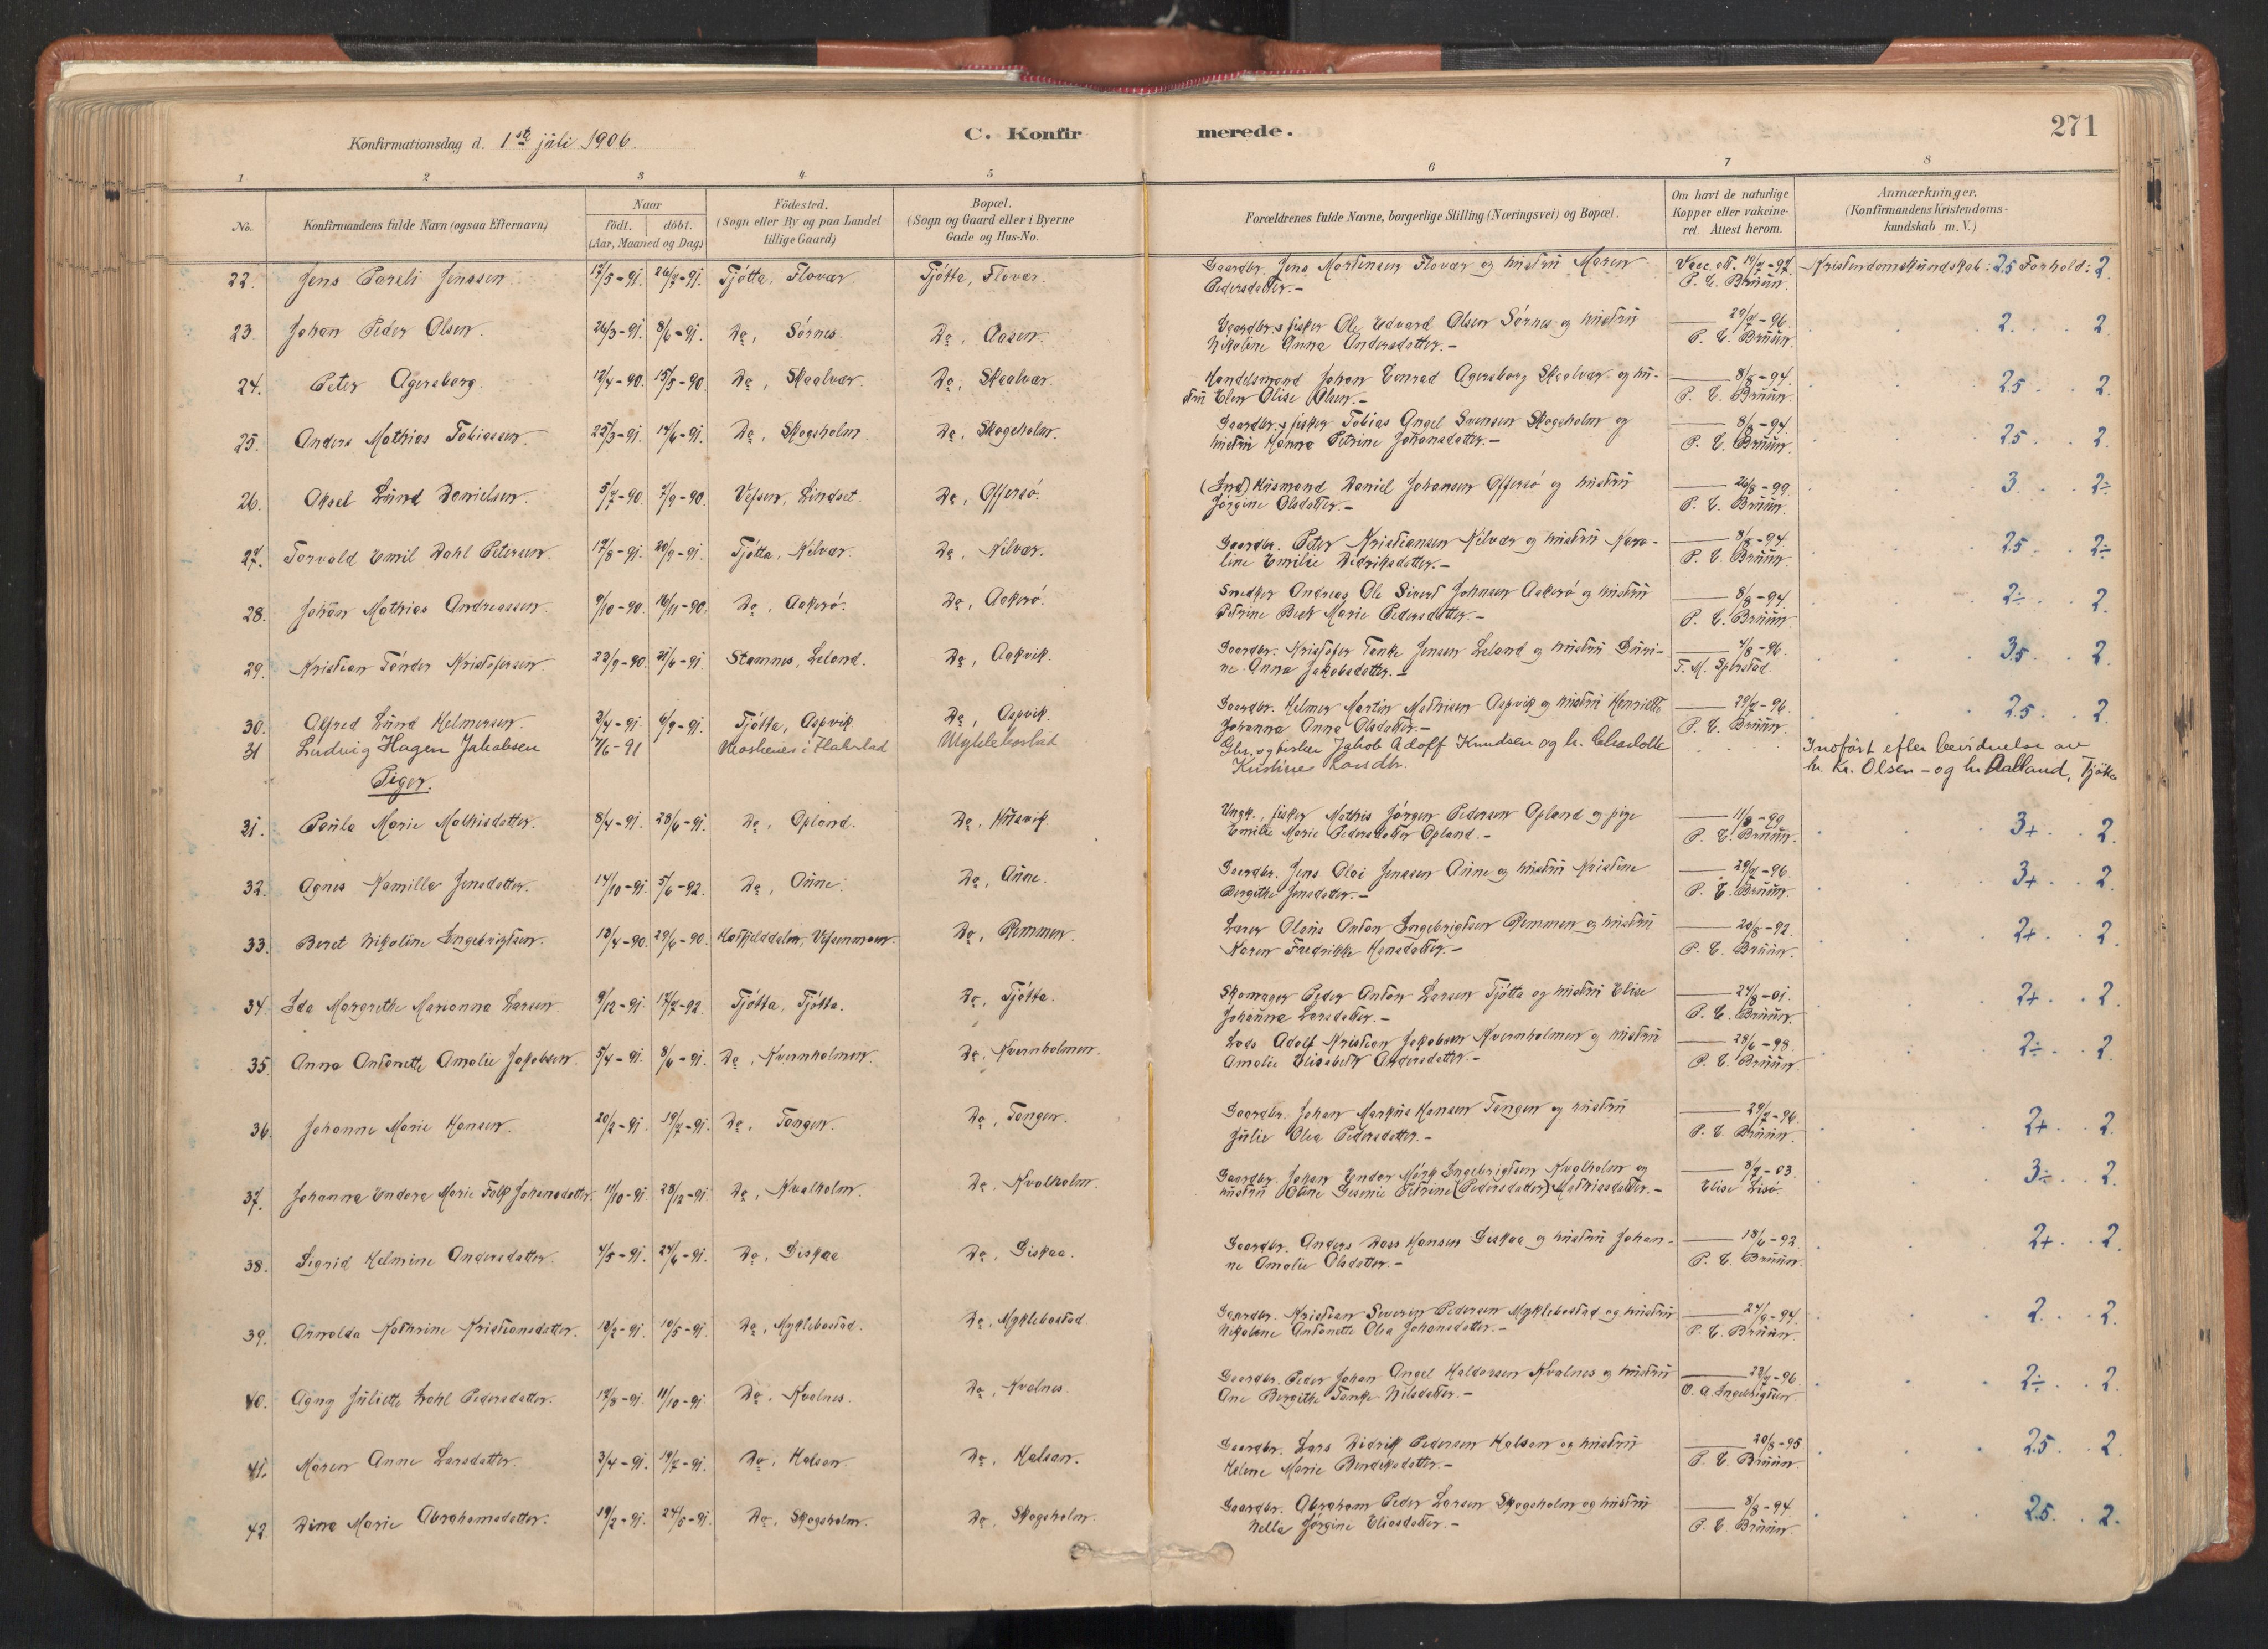 271
Konfirmationsdag d. 1ste juli 1906.
C. Konfirmerede.
1 2 3 4 5 6 7 8
No.
Konfirmandens fulde Navn (ogsaa Efternavn)
Naar
födt. döbt.
(Aar, Maaned og Dag)
Födested.
(Sogn eller By og paa Landet
tillige Gaard)
Bopæl.
(Sogn og Gaard eller i Byerne
Gade og Hus-No.
Forældrenes fulde Navne, borgerlige Stilling (Næringsvei) og Bopæl.
Om havt de naturlige
Kopper eller vakcine-
ret. Attest herom.
Anmærkninger.
(Konfirmandens Kristendoms-
kundskab m. V.)
22. Jens Pareli Jenssen. 17/5-91. 26/7-91. Tjötta, Flovær. Tjötta, Flovær. Gaardbr. Jens Mortensen Flovær og hustru Maren Vacc. att. 19/7-97. Kristendomskundskab: 2.5 Forhold: 2.
Pedersdatter.- P. E. Bruun.
23. Johan Peder Olsen. 26/3-91. 8/6-91. Do, Sörnes. Do, Aasen. Gaardbr. & fisker Ole Edvard Olsen Sörnes og hustru 29/7-96. 2. 2.
Nikoline Anna Andersdatter.- P. E. Bruun.
24. Peter Agersborg. 12/4-90. 15/5-90. Do, Skaalvær. Do, Skaalvær. Handelsmand Johan Conrad Agersborg Skaalvær og hu- 8/8-94. 2.5 2.
stru Elen Olise Olsen.- P. E. Bruun.
25. Anders Mathias Tobiassen. 25/3-91. 14/6-91. Do, Skogsholm. Do, Skogsholm. Gaardbr. & fisker Tobias Angel Svensen Skogsholm og 8/8-94. 2.5 2.
hustru Hanna Petrine Johansdatter.- P. E. Bruun.
26. Aksel Lund Danielsen. 5/7-90. 7/9-90. Vefsen, Lindset. Do, Offersö. (Ind) Husmand Daniel Johansen Offersö og hustru 26/8-99. 3 2÷
Jörgine Olsdatter.- P. E. Bruun.
27. Torvald Emil Dahl Petersen. 17/8-91. 20/9-91. Tjötta, Kilvær. Do, Kilvær. Gaardbr. Peter Kristiansen Kilvær og hustru Karo- 8/8-94. 2.5 2÷
line Emilie Didriksdatter.- P. E. Bruun.
28. Johan Mathias Andreassen. 9/10-90. 16/11-90. Do, Aakerö. Do, Aakerö. Snedker Andreas Ole Sivert Johnsen Aakerö og hustru 8/8-94. 2÷ 2.
Petrine Beck Marie Pedersdatter.- P. E. Bruun.
29. Kristian Tönder Kristofersen. 23/9-90. 21/6-91. Stamnes, Leland. Do, Aakvik. Gaardbr. Kristofer Tanke Jensen Leland og hustru Duri- 4/8-96. 3.5 2.
ne Anna Jakobsdatter.- T. M. Sperstad.
30. Alfred Lund Helmersen. 2/4-91. 6/9-91. Tjötta, Aspvik Do, Aspvik. Gaardbr. Helmer Martin Mathisen Aspvik og hustru Henriette 29/7-96. 2.5 2.
Johanna Anna Olsdatter.- P. E. Bruun.
31 Ludvig Hagen Jakobsen 7/6-91 Moskenes i Flakstad Myklebostad Gbr. og fisker Jakob Adolf Knudsen og h. Charlotte Indført efter bevidnelse av
Kristine Larsdtr. hr. Kr. Olsen - og hr. Dalland, Tjötta
Piger.
31. Paula Marie Mathisdatter. 8/4-91. 28/6-91. Do, Opland. Do, Husvik. Ungk., fisker Mathis Jörgen Pedersen Opland og pige 11/8-99 3+ 2.
Emilie Marie Pedersdatter Opland.- P. E. Bruun.
32. Agnes Kamilla Jensdatter. 14/10-91. 5/6-92. Do, Aune. Do, Aune. Gaardbr. Jens Olai Jenssen Aune og hustru Kristine 29/7-96. 3+ 2.
Bergithe Jensdatter.- P. E. Bruun.
33. Beret Nikoline Ingebrigtsen. 13/4-90. 29/6-90. Hatfjelddalen, Vefsenmoen. Do, Remmen. Lærer Olaus Anton Ingebrigtsen Remmen og hustru 20/8-92. 2+ 2.
Karen Fredrikke Hansdatter.- P. E. Bruun.
34. Ida Margrethe Marianna Larsen. 9/12-91. 17/7-92. Tjötta, Tjötta. Do, Tjötta. Skomager Peder Anton Larsen Tjötta og hustru Elise 24/8-01. 2+ 2.
Johanna Larsdatter.- P. E. Bruun.
35. Anna Antonette Amalie Jakobsen. 5/4-91. 8/6-91. Do, Kvernholmen. Do, Kvernholmen. Lods Adolf Kristian Jakobsen Kvernholmen og hustru 28/6-98. 2÷ 2.
Amalie Elisabeth Andersdatter.- P. E. Bruun.
36. Johanne Marie Hansen. 20/2-91. 19/7-91. Do, Tangen. Do, Tangen. Gaardbr. Johan Markus Hansen Tangen og hustru 29/7-96. 2+ 2.
Julie Olea Pedersdatter.- P. E. Bruun.
37. Johanna Endora Marie Falk Johansdatter. 11/10-91. 28/12-91. Do, Kvalholm. Do, Kvalholm. Gaardbr. Johan Endor Mörk Ingebrigtsen Kvalholm og 8/7-03. 3÷ 2.
hustru Oline Gesmine Petrine (Pedersdatter) Mathiasdatter.- Elise Lisö.
38. Sigrid Helmine Andersdatter. 4/5-91. 24/6-91. Do, Giskaa. Do, Giskaa. Gaardbr. Anders Dass Hansen Giskaa og hustru Johan- 18/6-92. 2+ 2.
ne Amalie Olsdatter.- P. E. Bruun.
39. Arnolda Kathrine Kristiansdatter. 12/2-91. 10/5-91. Do, Myklebostad. Do, Myklebostad Gaardbr. Kristian Severin Pedersen Myklebostad og hustru 24/9-94. 2. 2.
Nikoline Antonette Olea Johansdatter.- P. E. Bruun.
40. Agny Juliette Dahl Pedersdatter. 17/8-91. 11/10-91. Do, Kvalnes. Do, Kvalnes. Gaardbr. Peder Johan Angel Haldorsen Kvalnes og hustru 23/7-96. 2÷ 2.
Ane Bergithe Tanke Nilsdatter.- O. A. Ingebrigtsen
41. Maren Anne Larsdatter. 3/4-91. 19/7-91. Do, Halsan. Do, Halsan. Gaardbr. Lars Didrik Pedersen Halsan og hustru 20/8-95 2.5 2.
Helene Marie Bendiksdatter.- P. E. Bruun.
42. Dina Marie Abrahamsdatter. 19/2-91. 24/5-91. Do, Skogsholm. Do, Skogsholm Gaardbr. Abraham Peder Larsen Skogsholm og hustru 8/8-94. 2.5. 2.
Nella Jörgine Eliasdatter.- P. E. Bruun.